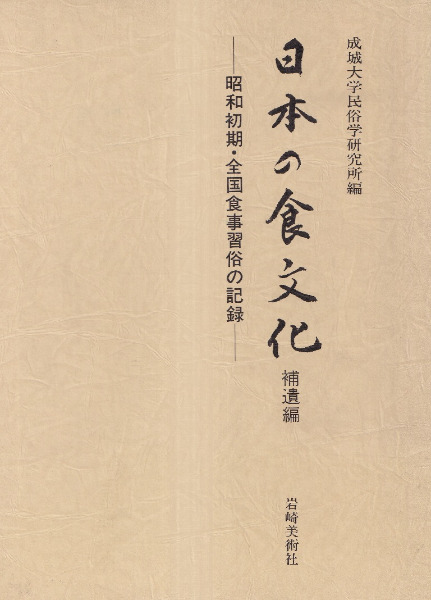 成城大学民俗学研究所編
日本の食文化
補遺編
——昭和初期・全国食事習俗の記録——
岩崎美術社